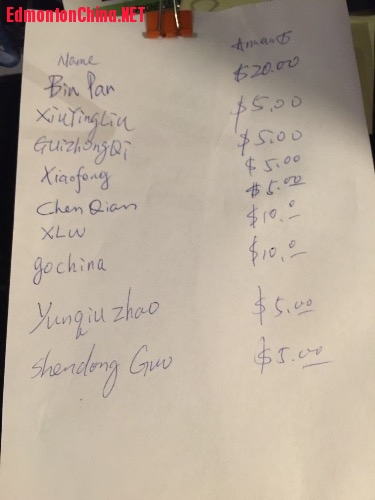 EdmontonChina.NET
Name Amount
Bin Pan $20.00
XiuYingLiu $5.00
GuizhongQi $5.00
Xiaofeng $5.00
Chen Qian $5.00
XLW $10.0
gochina $10.0
Yunqiu zhao $5.00
Shendong Guo $5.00